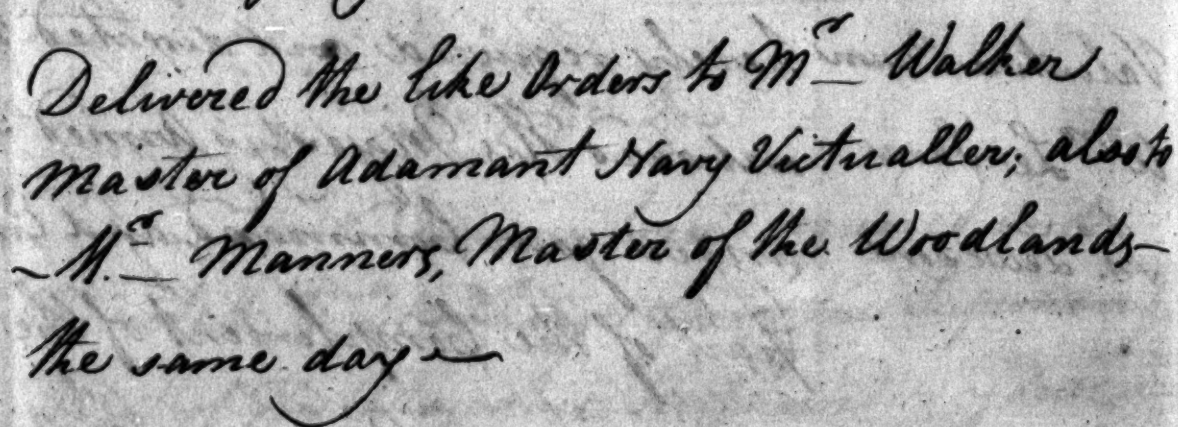 Delivered the like Orders to Mr Walker
Master of Adamant Navy Victualler; also to
- Mr Manners, Master of the Woodlands -
the same day -